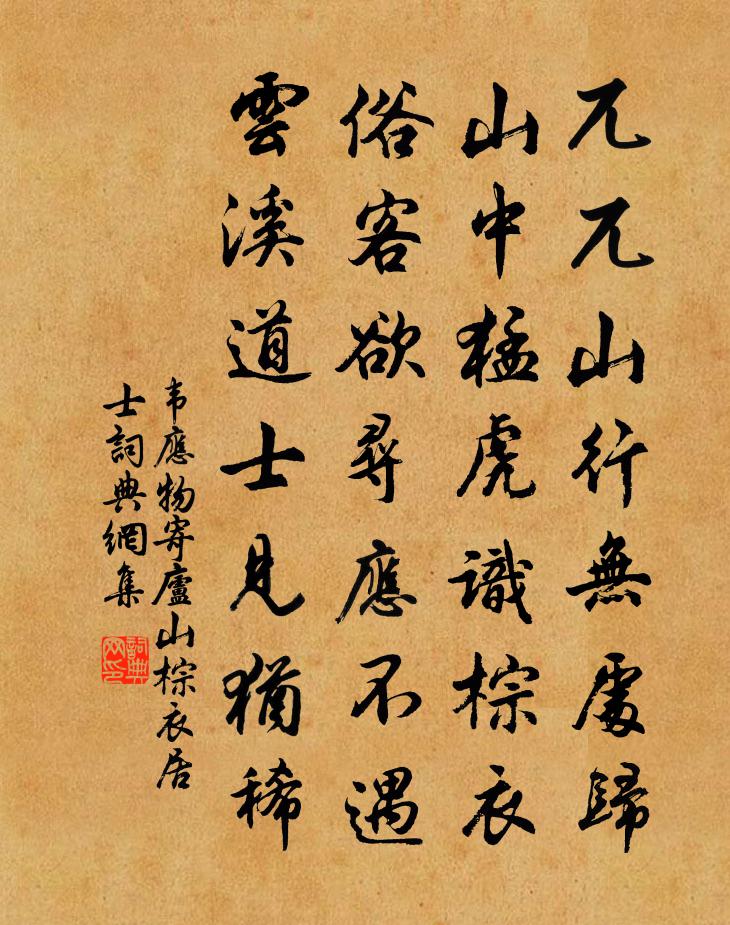 兀兀山行無處歸
山中猛虎識棕衣
俗客欲尋應不遇
雲溪道士見猶稀
韦應物寄廬山棕衣居
士詞典網集
詞典
网印